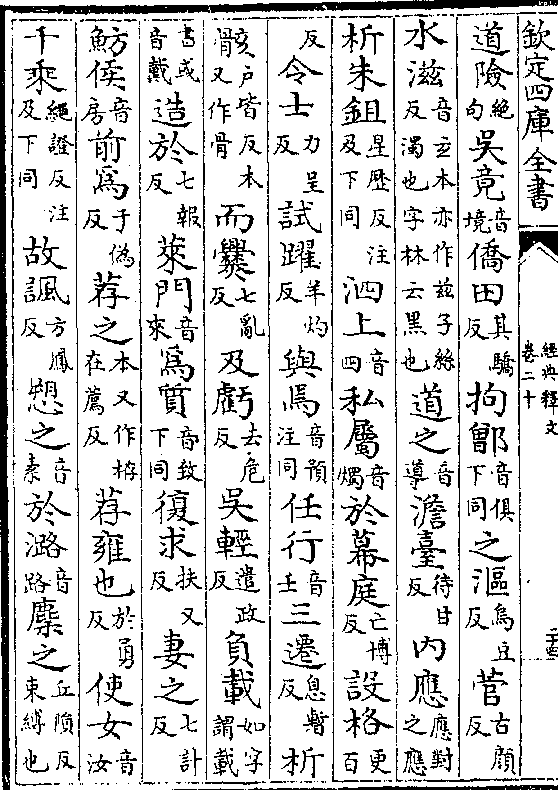 欽定四庫全書
經典釋文
卷二十
二十四
道險絶句吴竟音境僑田其驕反拘鄫音俱下同之漚烏豆反菅古顔反
水滋音玄本亦作兹子絲反濁也字林云黑也道之音導澹臺待甘反内應應對之應
析朱鉏星歴反注及下同泗上音四私屬音燭於幕庭亡博反設格更百
反令士力呈反試躍羊灼反與焉音預注同任行音壬三遷息暫反析
骸户皆反本又作骨而爨七亂反及虧去危反吳輕遣政反負載如字謂載
書或音戴造於七報反萊門音來爲質音致下同復求扶又反妻之七計反
魴侯音房前爲于偽反荐之本又作栫在薦反荐雍也於勇反使女音汝
千乘繩證反注及下同故諷方鳳反愬之音素於潞音路麇之丘隕反束縛也